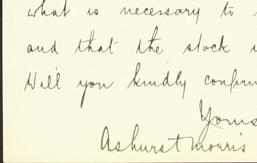 what is necessary to
and that the stock
Will you kindly confirm
Yours
Ashurst Morris